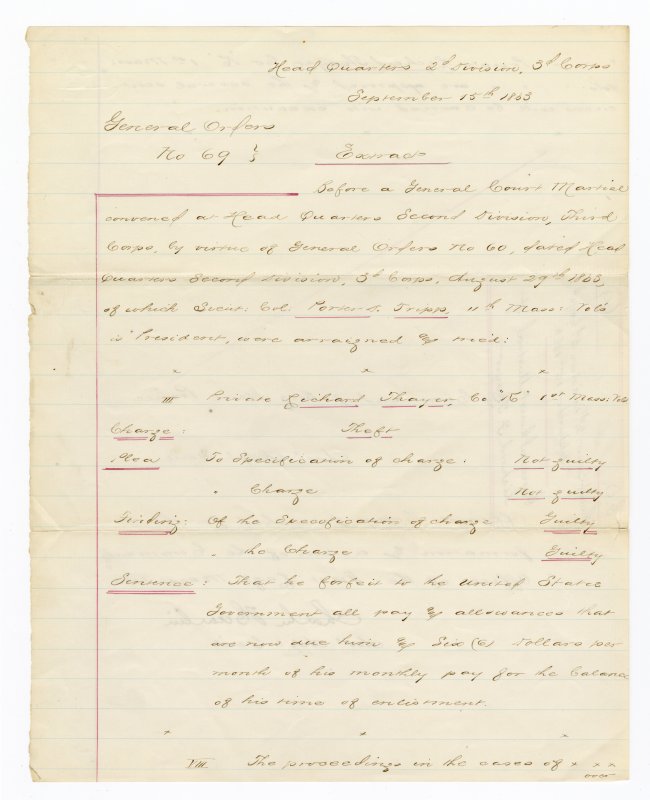 Head Quarters 2d Division, 3d Corps
September 15th 1863
General Orders
No 69 } Extract
Before a General Court Martial
convened at Head Quarters Second Division, Third
Corps, by virtue of General Orders No 60, dated Head
Quarters Second Division, 3d Corps, August 29th 1863,
of which Lieut: Col: Porter D. Tripp, 11th Mass: Vols
is President, were arraigned & tried:
x x x
III Private Richard Thayer, Co "K" 1st Mass: Vols
Charge: Theft
Plea To Specification of charge: Not guilty
" Charge Not guilty
Finding: Of the Specification of charge Guilty
" the Charge Guilty
Sentence: That he forfeit to the United States
Government all pay & allowances that
are now due him & Six (6) Dollars per
month of his monthly pay for the balance
of his time of enlistment.
x x x
VIII The proceedings in the cases of x x x
over